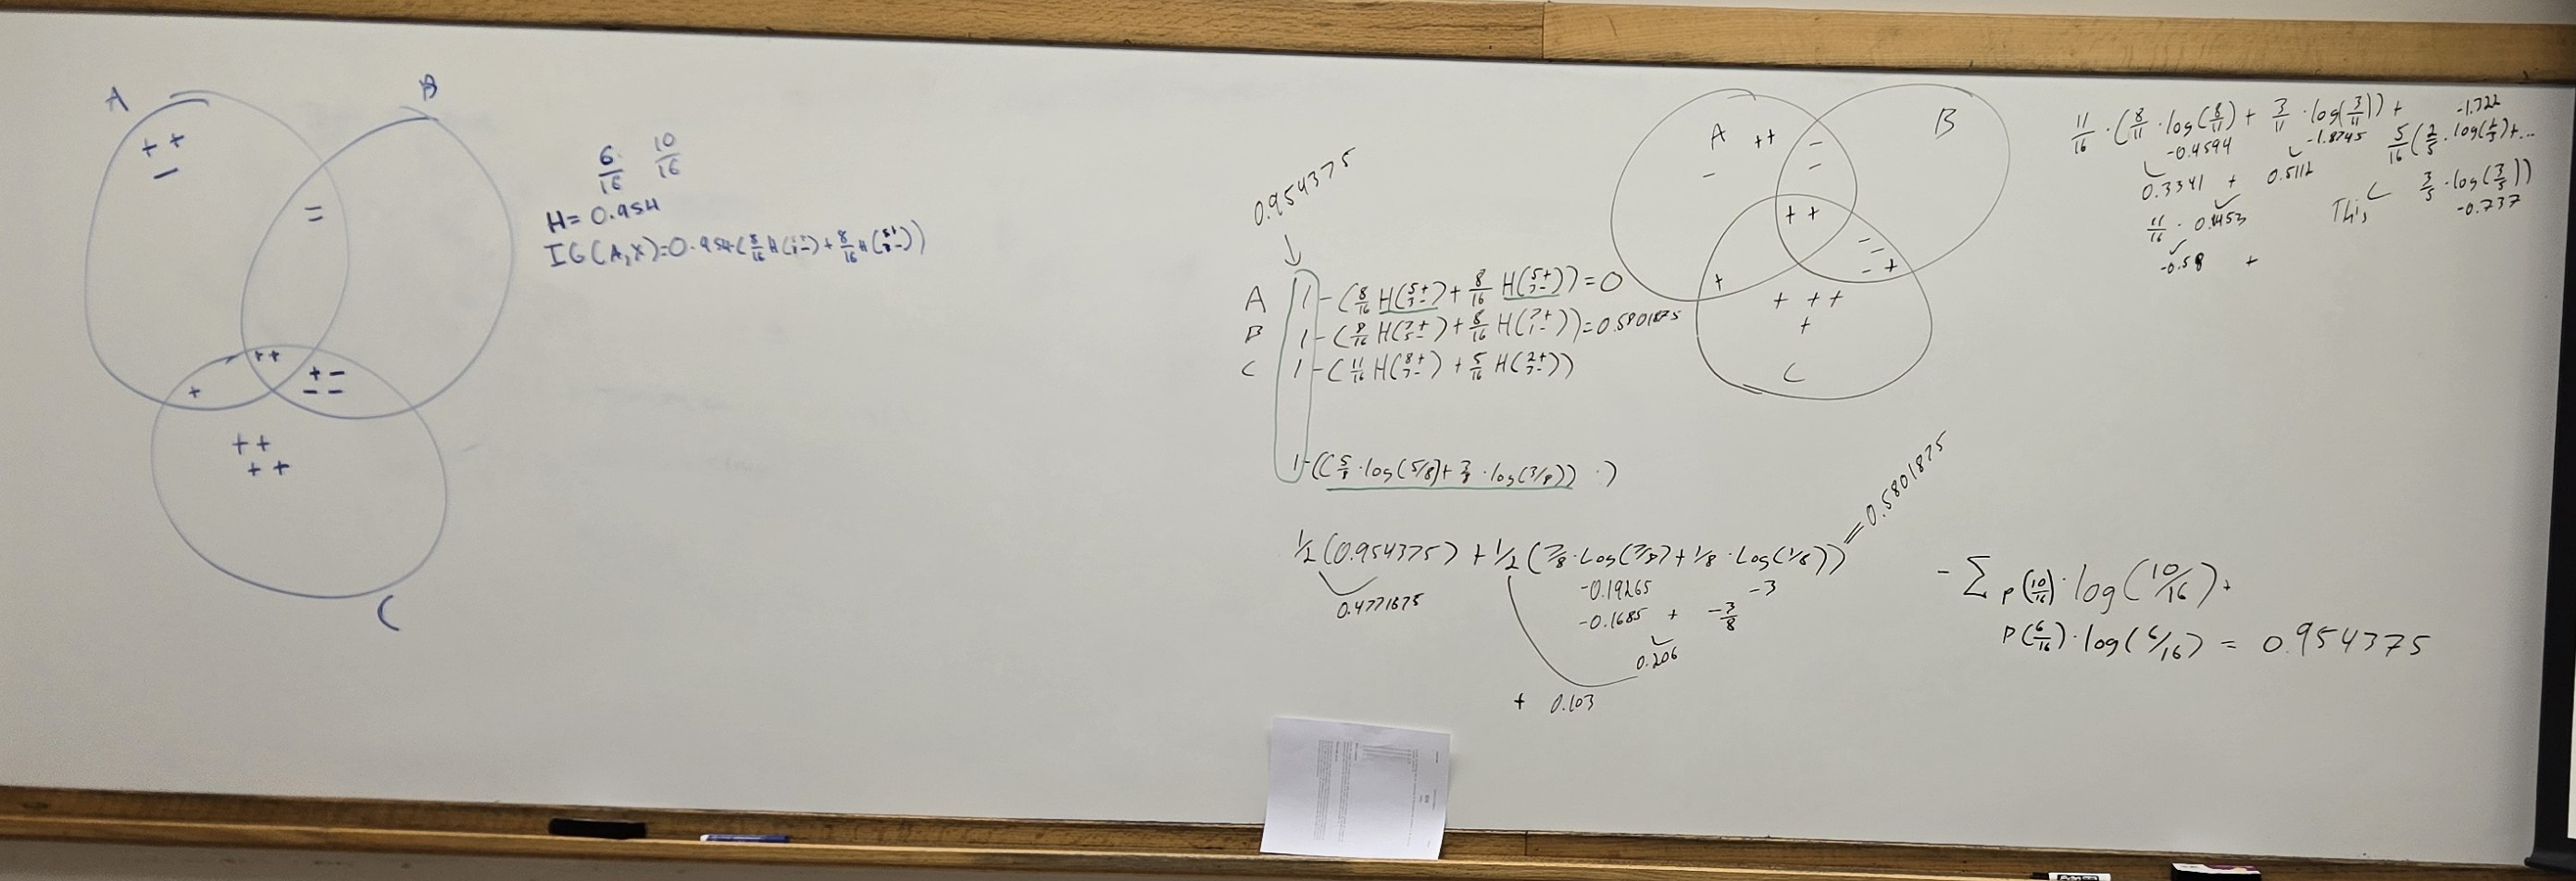 A
B
+ +
−
=
+ +
+ −
− −
+
+ +
+ +
C
6/16 10/16
H = 0.954
IG(A,X)=0.954(8/16 H( ) + 8/16 H( ))
0.954375
A 1 − (8/16 H(5+ 3−) + 8/16 H(5+ 3−)) = 0
B 1 − (8/16 H(3+ 5−) + 8/16 H(7+ 1−)) = 0.5801875
C 1 − (11/16 H(8+ 3−) + 5/16 H(2+ 3−))
1 − ((5/8 · log(5/8) + 3/8 · log(3/8)) )
1/2 (0.954375) + 1/2 (7/8 · Log(7/8) + 1/8 · Log(1/8)) = 0.5801875
0.4771875
-0.19265 -3
-0.1685 + -3/8
0.206
+ 0.103
A ++
B
−
−
−
+ +
− −
− +
+
+ + +
+
C
11/16 · (8/11 · log(8/11) + 3/11 · log(3/11)) + 5/16 (2/5 · log(2/5) + ...
-1.322
-0.4594 -1.8745
0.3341 + 0.5112
3/5 · log(3/5))
-0.737
This
11/16 · 0.8453
-0.58 +
− Σ P(10/16) · log(10/16) +
P(6/16) · log(6/16) = 0.954375